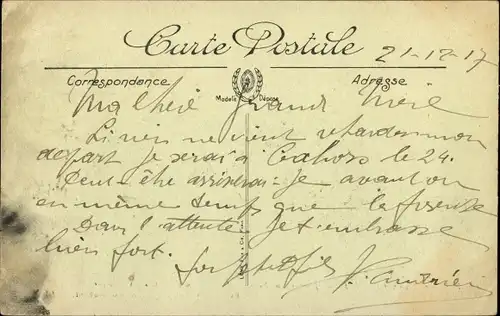 Carte Postale
21-12-17
Correspondance
Adresse
Modèle Déposé
Ma chère grand Mère
Si rien ne vient retarder mon
départ je serai à Cahors le 24.
Peut-être arriverai-je avant ou
en même temps que
Dans l'attente je t'embrasse
bien fort.